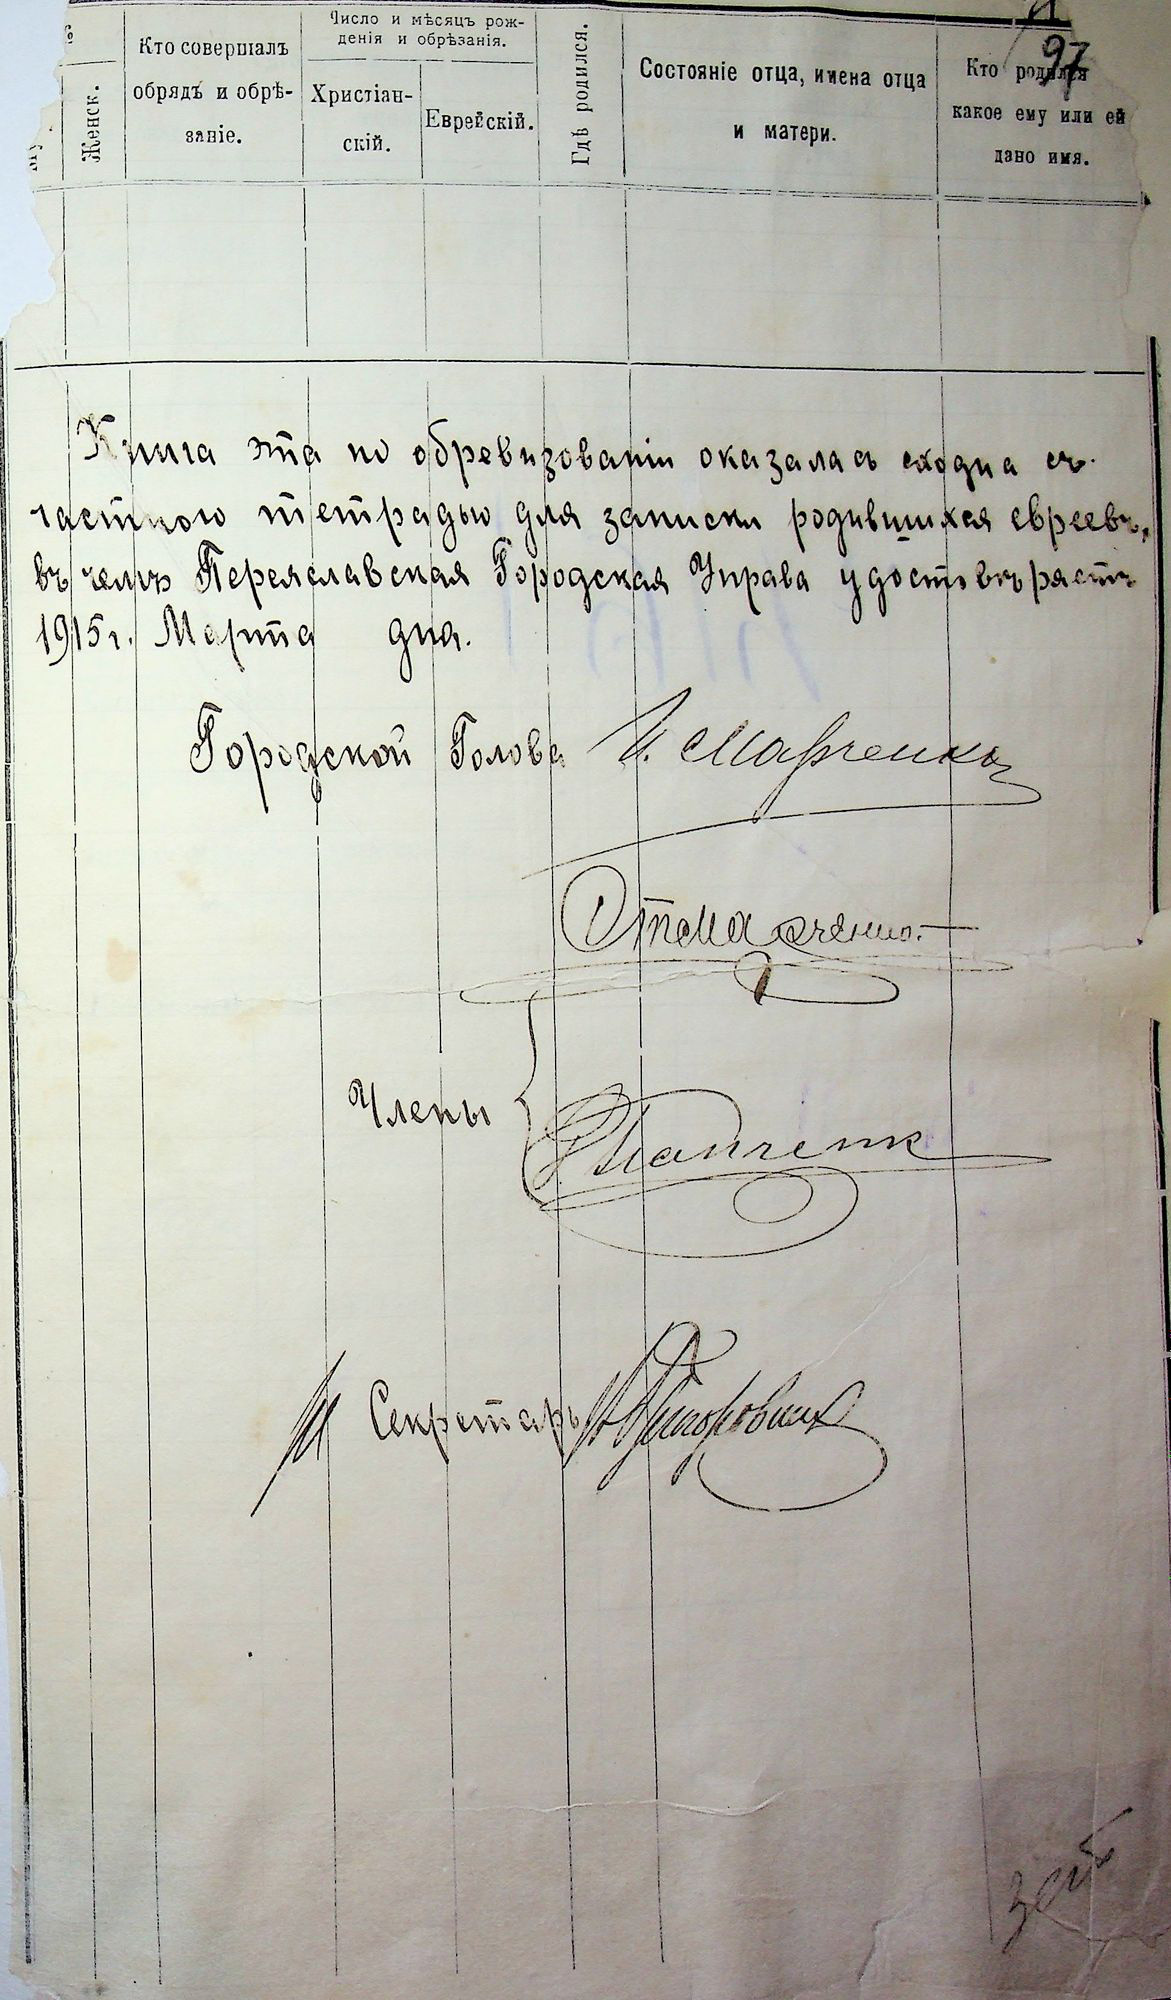 97
Женск.
Кто совершалъ
обрядъ и обрѣ-
заніе.
Число и мѣсяцъ рож-
денія и обрѣзанія.
Христіан-
скій.
Еврейскій.
Гдѣ родился.
Состояніе отца, имена отца
и матери.
Кто родился
какое ему или ей
дано имя.
Книга эта по обревизованіи оказалась сходна съ
частною тетрадью для записки родившихся евреевъ,
въ чемъ Переяславская Городская Управа удостовѣряетъ
1915 г. Марта дна.
Городской Голова И. Марченко
Члены
Секретарь